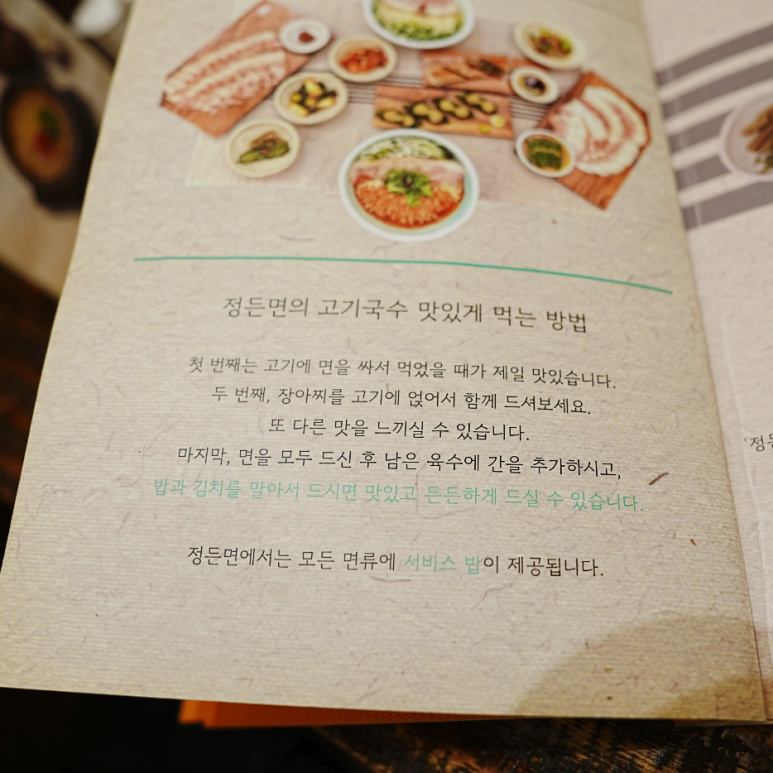 정든면의 고기국수 맛있게 먹는 방법
첫 번째는 고기에 면을 싸서 먹었을 때가 제일 맛있습니다.
두 번째, 장아찌를 고기에 얹어서 함께 드셔보세요.
또 다른 맛을 느끼실 수 있습니다.
마지막, 면을 모두 드신 후 남은 육수에 간을 추가하시고,
밥과 김치를 말아서 드시면 맛있고 든든하게 드실 수 있습니다.
정든면에서는 모든 면류에 서비스 밥이 제공됩니다.